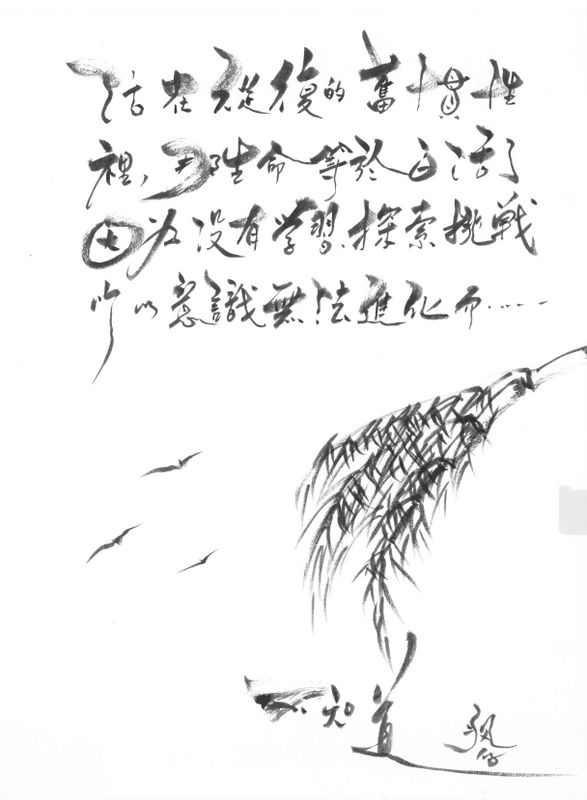 活在反復的舊慣性
裡,生命等於白活了
因为沒有学習探索挑戦
所以意識無法進化而……
不知道